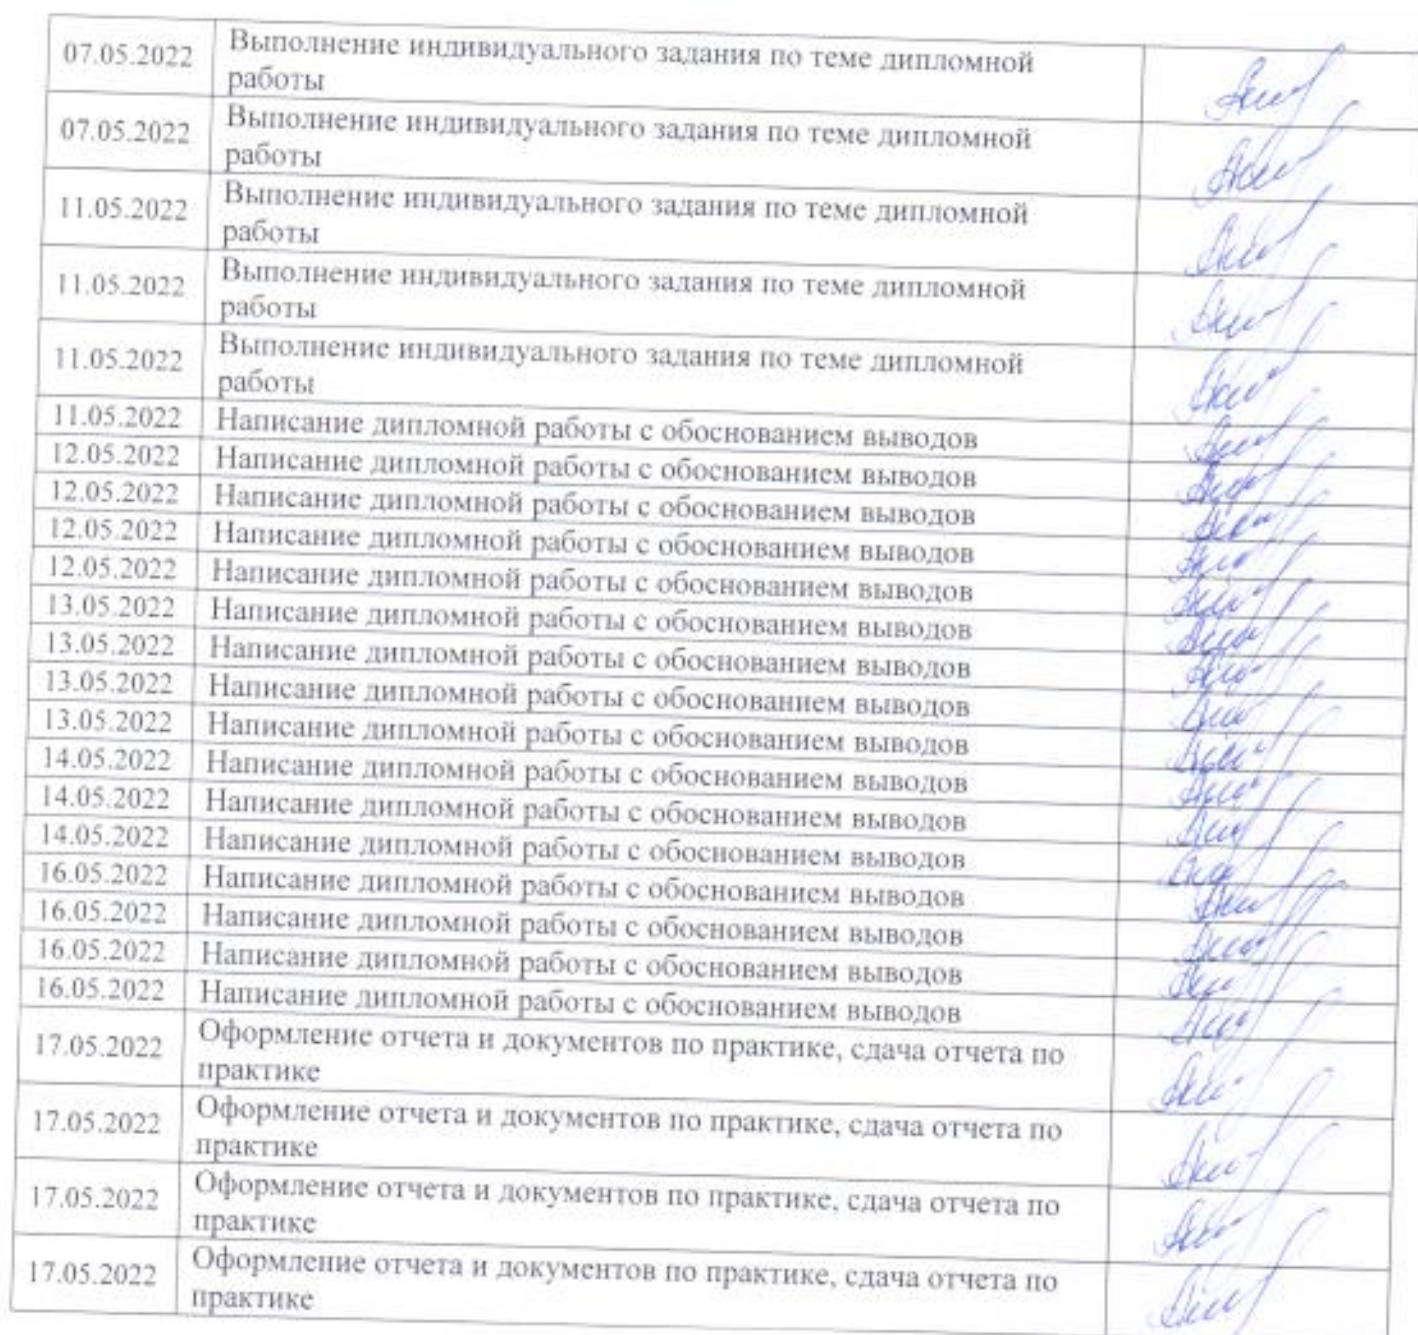 07.05.2022 Выполнение индивидуального задания по теме дипломной
работы
07.05.2022 Выполнение индивидуального задания по теме дипломной
работы
11.05.2022 Выполнение индивидуального задания по теме дипломной
работы
11.05.2022 Выполнение индивидуального задания по теме дипломной
работы
11.05.2022 Выполнение индивидуального задания по теме дипломной
работы
11.05.2022 Написание дипломной работы с обоснованием выводов
12.05.2022 Написание дипломной работы с обоснованием выводов
12.05.2022 Написание дипломной работы с обоснованием выводов
12.05.2022 Написание дипломной работы с обоснованием выводов
12.05.2022 Написание дипломной работы с обоснованием выводов
13.05.2022 Написание дипломной работы с обоснованием выводов
13.05.2022 Написание дипломной работы с обоснованием выводов
13.05.2022 Написание дипломной работы с обоснованием выводов
13.05.2022 Написание дипломной работы с обоснованием выводов
14.05.2022 Написание дипломной работы с обоснованием выводов
14.05.2022 Написание дипломной работы с обоснованием выводов
14.05.2022 Написание дипломной работы с обоснованием выводов
16.05.2022 Написание дипломной работы с обоснованием выводов
16.05.2022 Написание дипломной работы с обоснованием выводов
16.05.2022 Написание дипломной работы с обоснованием выводов
16.05.2022 Написание дипломной работы с обоснованием выводов
17.05.2022 Оформление отчета и документов по практике, сдача отчета по
практике
17.05.2022 Оформление отчета и документов по практике, сдача отчета по
практике
17.05.2022 Оформление отчета и документов по практике, сдача отчета по
практике
17.05.2022 Оформление отчета и документов по практике, сдача отчета по
практике